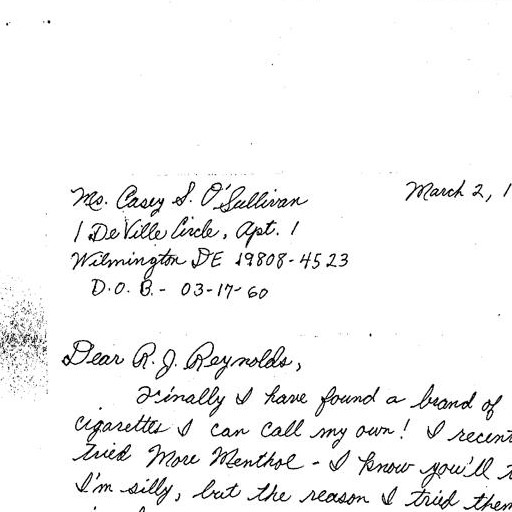 Ms. Casey S. O'Sullivan
March 2, 1
1 DeVille Circle, Apt. 1
Wilmington DE 19808-4523
D.O.B.- 03-17-60
Dear R. J. Reynolds,
Finally I have found a brand of
cigarettes I can call my own! I recent
tried More Menthol - I know you'll t
I'm silly, but the reason I tried them